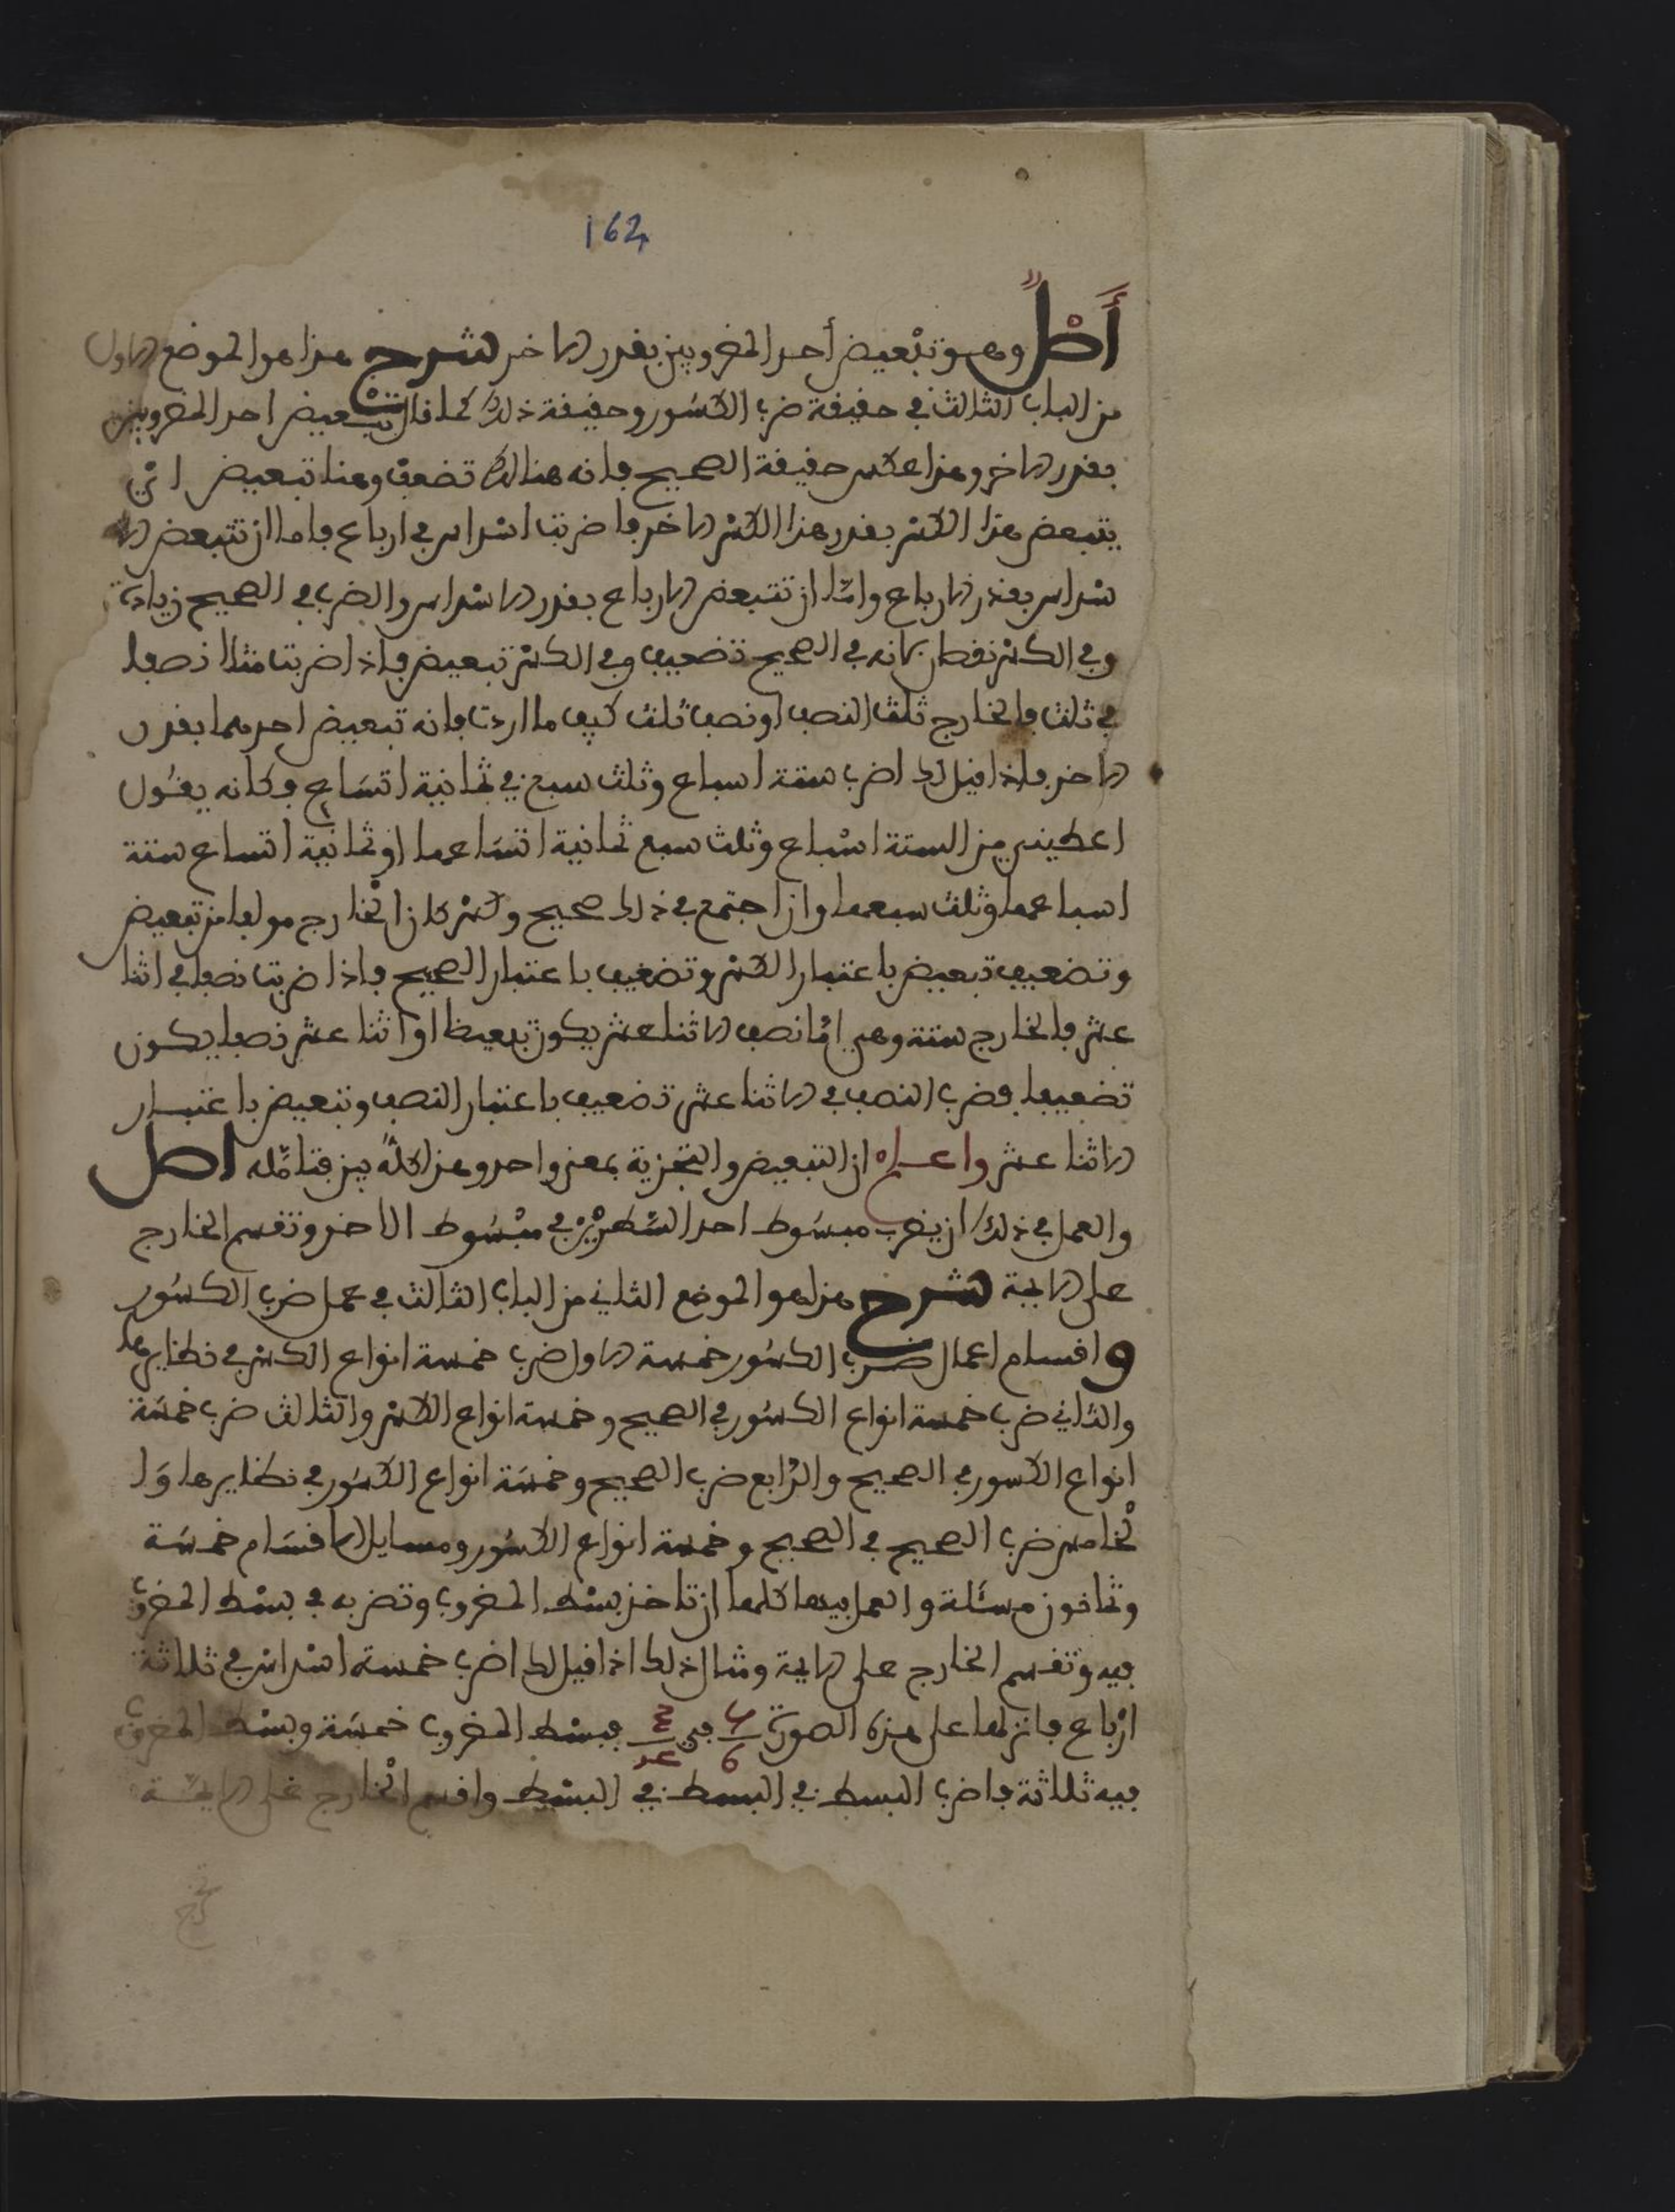 162
أصلٌ وهو تبعيض أحد المضروبين بقدر الاخر شرح هذا هو الموضع الاول
من الباب الثالث في حقيقة ضرب الكسور وحقيقة ذلك كما قال تبعيض احد المضروبين
بقدر الاخر وهذا عكس حقيقة الصحيح فانه هنالك تضعيف وهنا تبعيض اي
يتبعض هذا الكسر بقدر هذا الكسر الاخر فاضربت اسداس في ارباع فاما ان تتبعض الا
سداس بقدر الارباع وامّا ان تتبعض الارباع بقدر الاسداس والضرب في الصحيح زيادة
وفي الكسر نقصان لانه في الصحيح تضعيف وفي الكسر تبعيض فاذا ضربت مثلا نصفا
في ثلث فالخارج ثلث النصف او نصف ثلث كيف ما اردت فانه تبعيض احدهما بقدر
الاخر فاذا قيل لك اضرب ستة اسباع وثلث سبع في ثمانية اتساع فكانه يقول
اعطيني من الستة اسباع وثلث سبع ثمانية اتساعها او ثمانية اتساع ستة
اسباعها وثلث سبعها وان اجتمع في ذلك صحيح وكسر كان الخارج مولفا من تبعيض
وتضعيف تبعيض باعتبار الكسر وتضعيف باعتبار الصحيح فاذا ضربت نصفا في اثنا
عشر فالخارج ستة وهي امّا نصف الاثنا عشر يكون تبعيظا او اثنا عشر نصفا يكون
تضعيفا فضرب النصف في الاثنا عشر تضعيف باعتبار النصف وتبعيض باعتبار
الاثنا عشر واعلم ان التبعيض والتجزية بمعنى واحد وهذا كلّه بين فتامّله اصل
والعمل في ذلك ان يضرب مبسوط احد السّطرين في مبسوط الاخر وتقسم الخارج
على الايمة شرح هذا هو الموضع الثاني من الباب الثالث في عمل ضرب الكسور
واقسام اعمال ضرب الكسور خمسة الاول ضرب خمسة انواع الكسر في نظايرها
والثاني ضرب خمسة انواع الكسور في الصحيح وخمسة انواع الكسر والثالث ضرب خمسة
انواع الكسور في الصحيح والرّابع ضرب الصحيح وخمسة انواع الكسور في نظايرها وَا
لخامس ضرب الصحيح في الصحيح وخمسة انواع الكسور ومسايل الاقسام خمسة
وثمانون مسئلة والعمل فيها كلها ان تاخذ بسط المضروب وتضربه في بسط المضروب
فيه وتقسم الخارج على الايمة ومثال ذلك اذا قيل لك اضرب خمسة اسداس في ثلاثة
ارباع فانزلها على هذه الصورة 5/6 في 3/4 فبسط المضروب خمسة وبسط المضروب
فيه ثلاثة فاضرب البسط في البسط في البسط واقسم الخارج على الايمّة